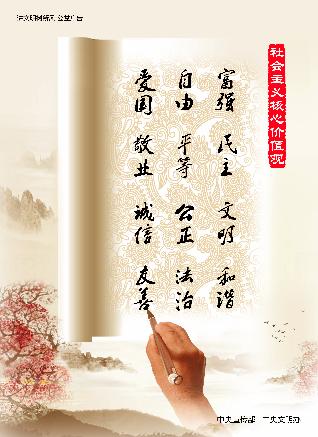 讲文明树新风 公益广告
社会主义核心价值观
富强 民主 文明 和谐
自由 平等 公正 法治
爱国 敬业 诚信 友善
中央宣传部 中央文明办